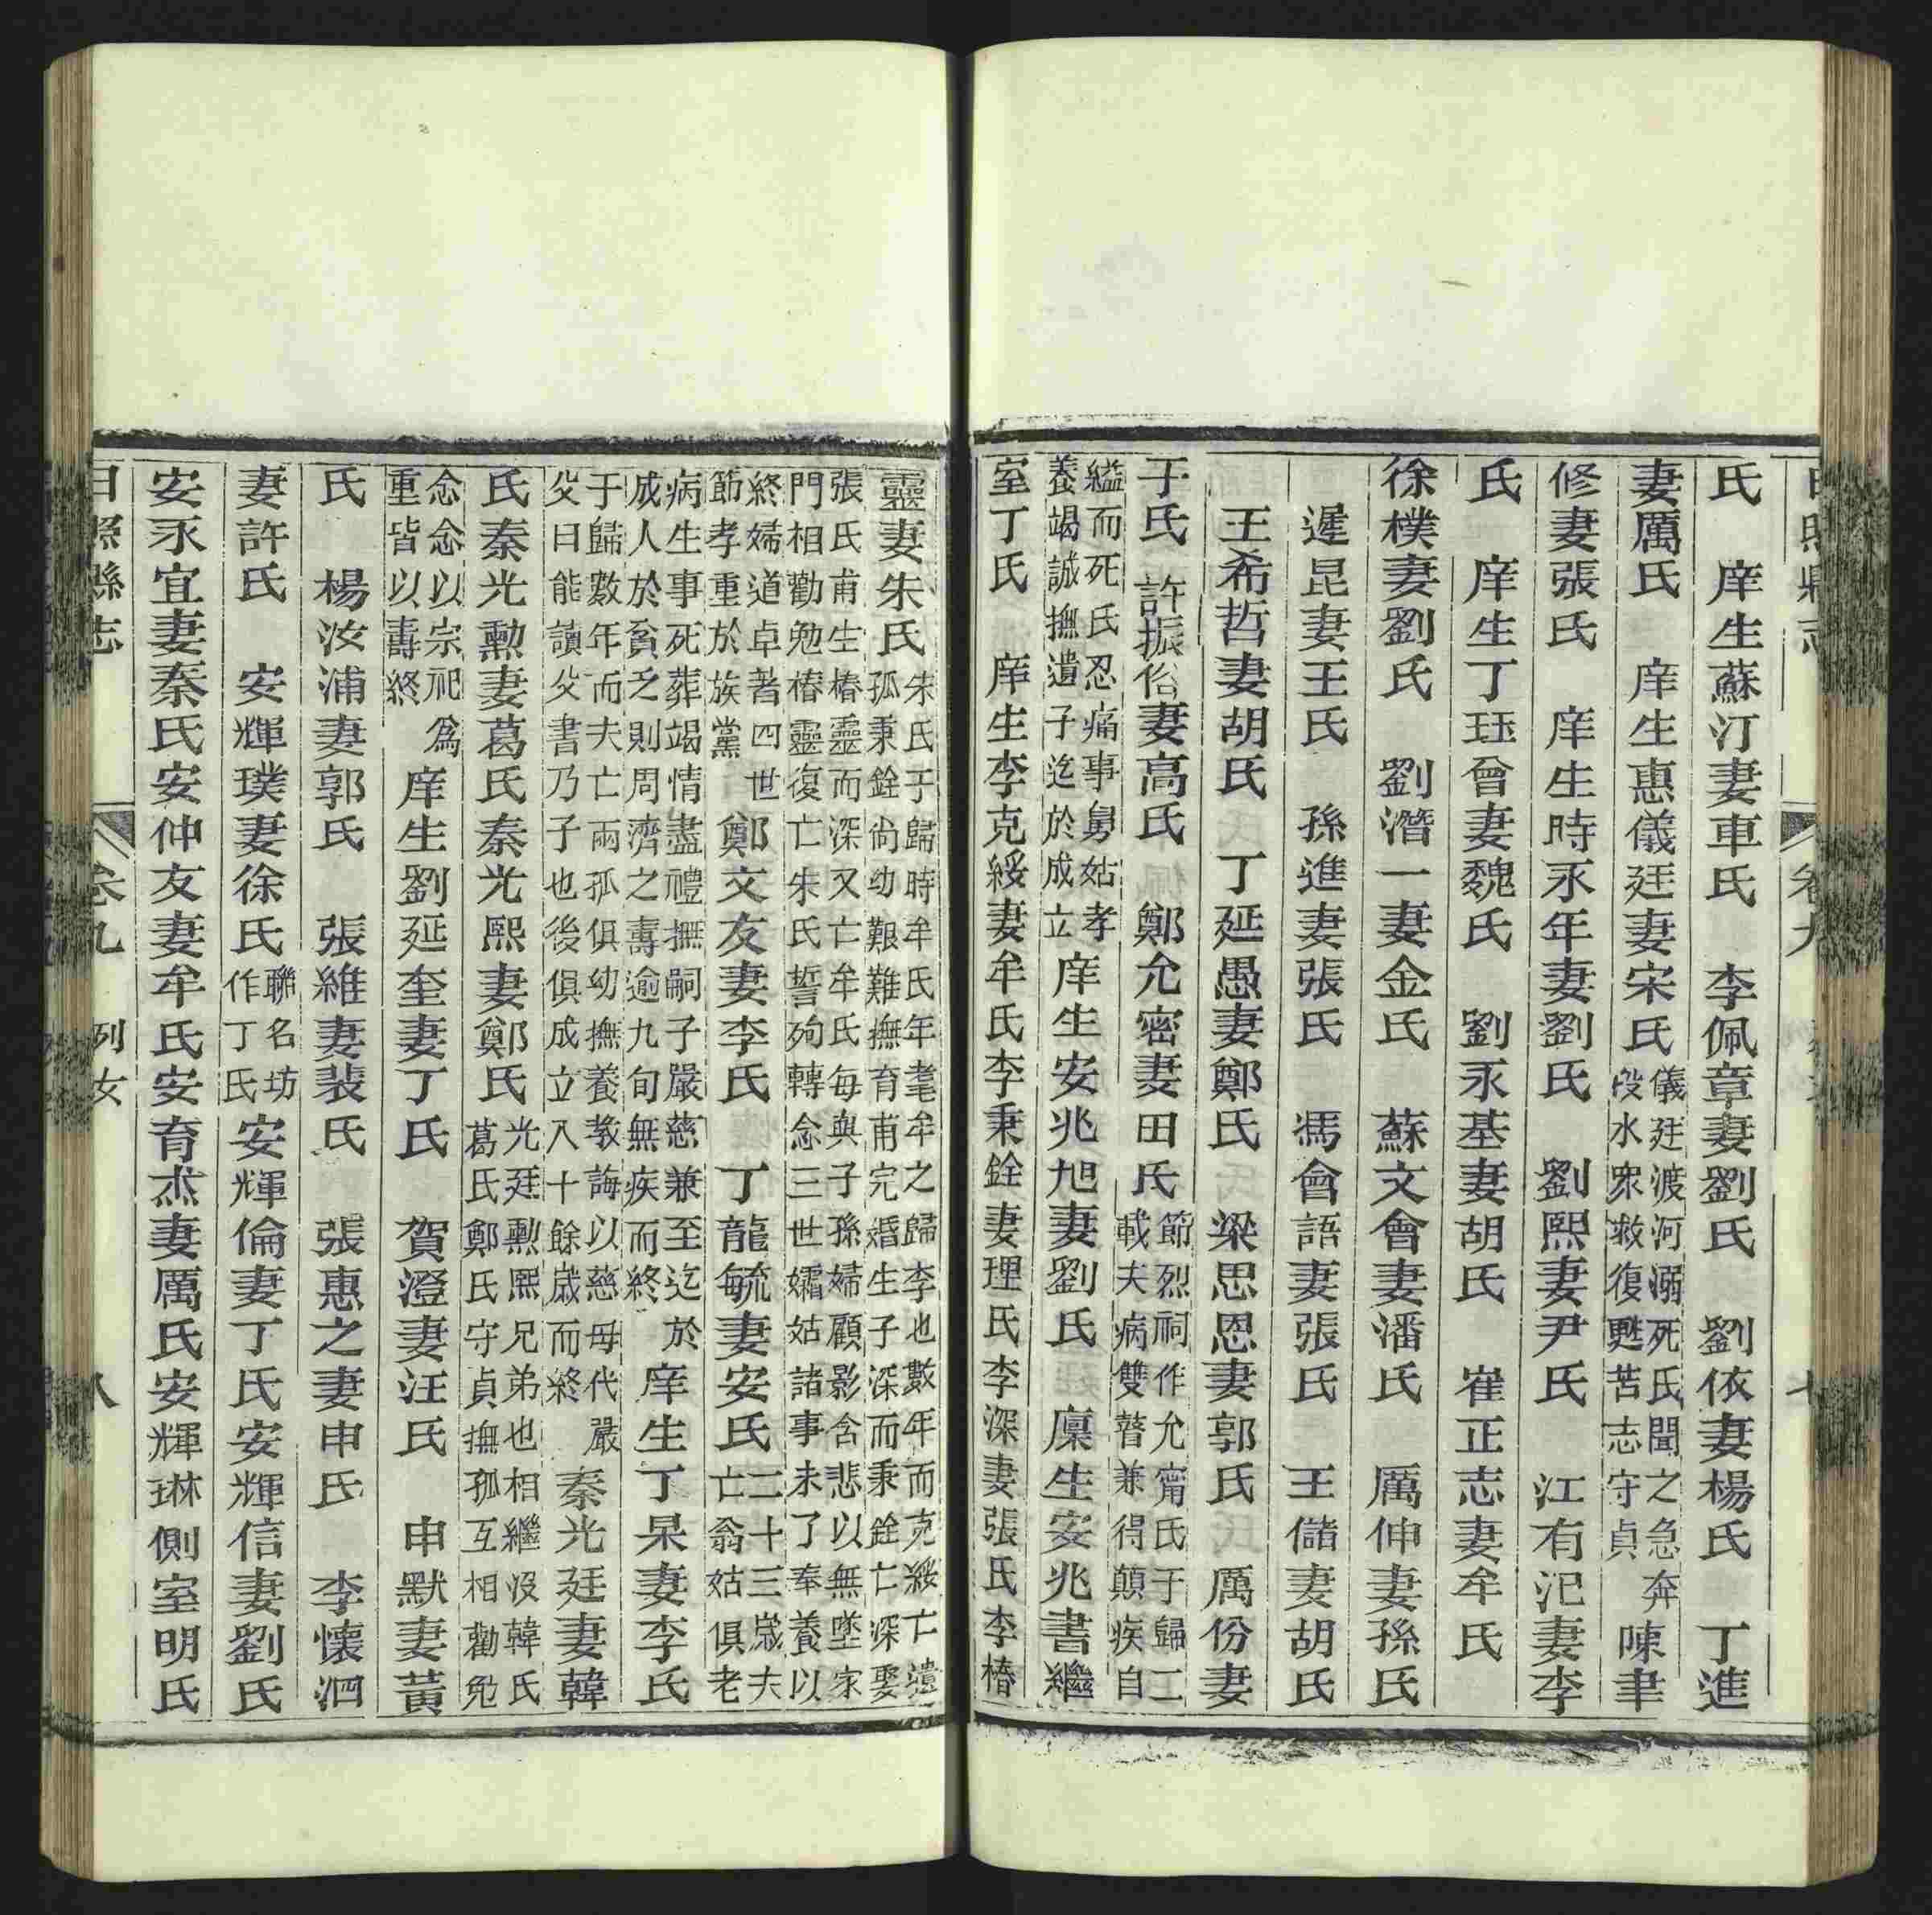 氏　庠生蘇汀妻車氏　李佩章妻劉氏　劉依妻楊氏　丁進
妻厲氏　庠生惠儀廷妻宋氏儀廷渡河溺死氏聞之急奔
叚水衆救復甦苦志守貞陳聿
修妻張氏　庠生時永年妻劉氏　劉熙妻尹氏　江有汜妻李
氏　庠生丁珏曾妻魏氏　劉永基妻胡氏　崔正志妻牟氏
徐樸妻劉氏　劉潛一妻金氏　蘇文會妻潘氏　厲伸妻孫氏
遲昆妻王氏　孫進妻張氏　馮會語妻張氏　王儲妻胡氏
王希哲妻胡氏　丁延愚妻鄭氏　梁思恩妻郭氏　厲份妻
于氏　許振佁妻高氏　鄭允密妻田氏節烈祠作允甯氏于歸二
載夫病雙瞽兼得顛疾自
縊而死氏忍痛事舅姑孝
養竭誠撫遺子迄於成立庠生安兆旭妻劉氏　廩生安兆書繼
室丁氏　庠生李克綏妻牟氏李秉銓妻理氏李深妻張氏李椿
靈妻朱氏朱氏于歸時牟氏年耄牟之歸李也數年而克綏亡遺
孤秉銓尙幼艱難撫育甫完婚生子深而秉銓亡深娶
張氏甫生椿靈而深又亡牟氏每與子孫婦顧影含悲以無墜家
門相勸勉椿靈復亡朱氏誓殉轉念三世孀姑諸事未了奉養以
終婦道卓著四世
節孝重於族黨鄭文友妻李氏　丁龍毓妻安氏二十三歲夫
亡翁姑俱老
病生事死葬竭情盡禮撫嗣子嚴慈兼至迄於
成人於貧乏則周濟之壽逾九旬無疾而終庠生丁杲妻李氏
于歸數年而夫亡兩孤俱幼撫養敎誨以慈毋代嚴
父曰能讀父書乃子也後俱成立八十餘歲而終秦光廷妻韓
氏秦光勳妻葛氏秦光熙妻鄭氏光廷勳熙兄弟也相繼沒韓氏
葛氏鄭氏守貞撫孤互相勸勉
念念以宗祀爲
重皆以壽終庠生劉延奎妻丁氏　賀澄妻汪氏　申默妻黃
氏　楊汝浦妻郭氏　張維妻裴氏　張惠之妻申氏　李懷泗
妻許氏　安輝璞妻徐氏聯名坊
作丁氏安輝倫妻丁氏安輝信妻劉氏
安永宜妻秦氏安仲友妻牟氏安育杰妻厲氏安輝琳側室明氏
日照縣志　卷九　列女　八